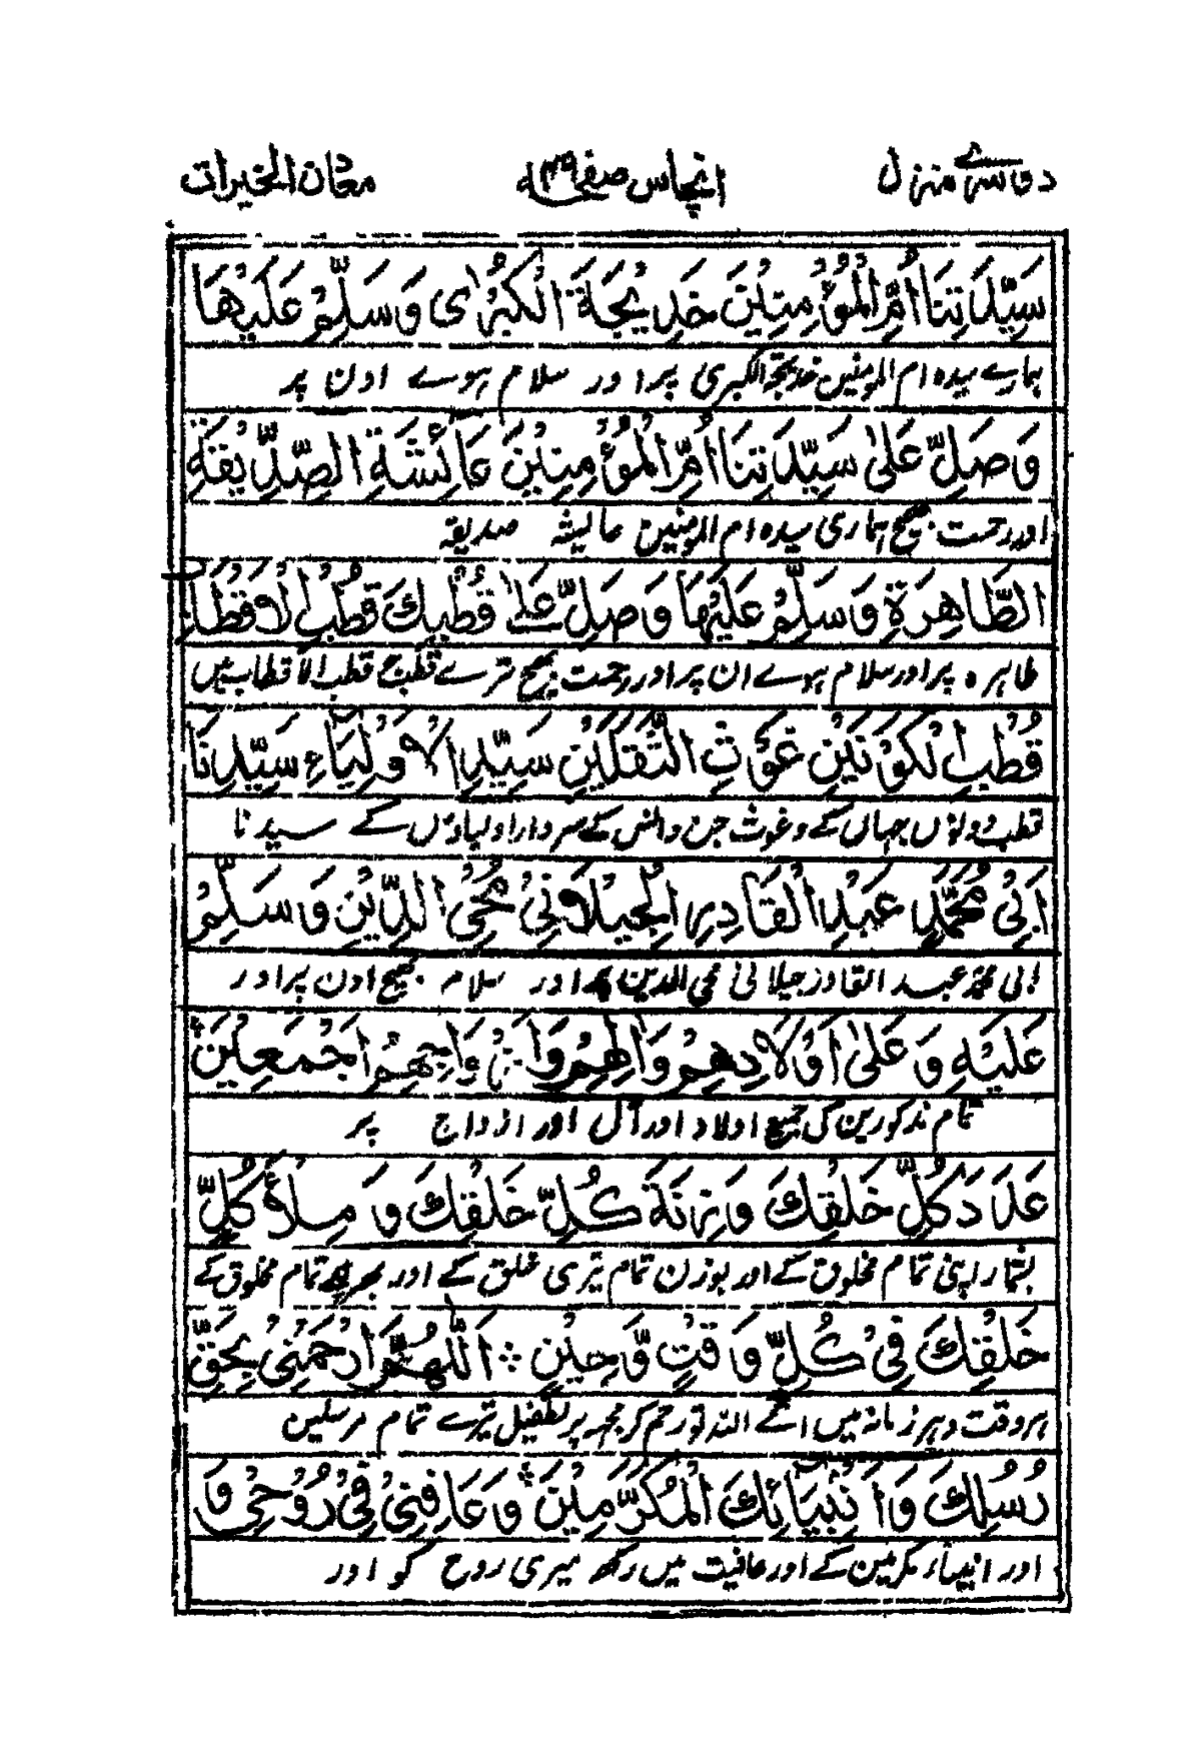 دوسرے منزل انچاس صفحہ ۴۹ معدن الخیرات
سَيِّدَتِنَا أُمِّ الْمُؤْمِنِيْنَ خَدِيْجَةَ الْكُبْرٰى وَسَلِّمْ عَلَيْهَا
ہمارے سیدہ ام المومنین خدیجۃ الکبری پر اور سلام ہوے اون پر
وَصَلِّ عَلٰى سَيِّدَتِنَا أُمِّ الْمُؤْمِنِيْنَ عَائِشَةِ الصِّدِّيْقَةِ
اور رحمت بھیج ہماری سیدہ ام المومنین عایشہ صدیقہ
الطَّاهِرَةِ وَسَلِّمْ عَلَيْهَا وَصَلِّ عَلٰى قُطْبِكَ قُطْبِ الْاَقْطَابِ
طاہرہ پر اور سلام ہوے ان پر اور رحمت بھیج ترے قطب قطب الاقطاب میں
قُطْبِ الْكَوْنَيْنِ غَوْثِ الثَّقَلَيْنِ سَيِّدِ الْاَوْلِيَاءِ سَيِّدِنَا
قطب دونوں جہاں کے وغوث جن وانس کے سردار اولیاؤں کے سیدنا
اَبِيْ مُحَمَّدٍ عَبْدِ الْقَادِرِ الْجِيْلَانِيْ مُحْيِ الدِّيْنِ وَسَلِّمْ
ابی محمد عبد القادر جیلانی محی الدین پر اور سلام بھیج اون پر اور
عَلَيْهِ وَعَلٰى اَوْلَادِهِمْ وَاٰلِهِمْ وَاَزْوَاجِهِمْ اَجْمَعِيْنَ
تمام مذکورین کی جمیع اولاد اور آل اور ازواج پر
عَدَدَ كُلِّ خَلْقِكَ وَزِنَةَ كُلِّ خَلْقِكَ وَمِلْأَ كُلِّ
بشمار اپنی تمام مخلوق کے اور بوزن تمام تیری خلق کے اور بھر تمام مخلوق کے
خَلْقِكَ فِيْ كُلِّ وَقْتٍ وَّحِيْنٍ ۞ اَللّٰهُمَّ ارْحَمْنِيْ بِحَقِّ
ہروقت وہرزمانہ میں اے اللہ تو رحم کر مجھ پر بطفیل تیرے تمام مرسلین
رُسُلِكَ وَاَنْبِيَائِكَ الْمُكَرَّمِيْنَ وَعَافِنِيْ فِيْ رُوْحِيْ وَ
اور انبیاء مکرمین کے اور عافیت میں رکھ میری روح کو اور